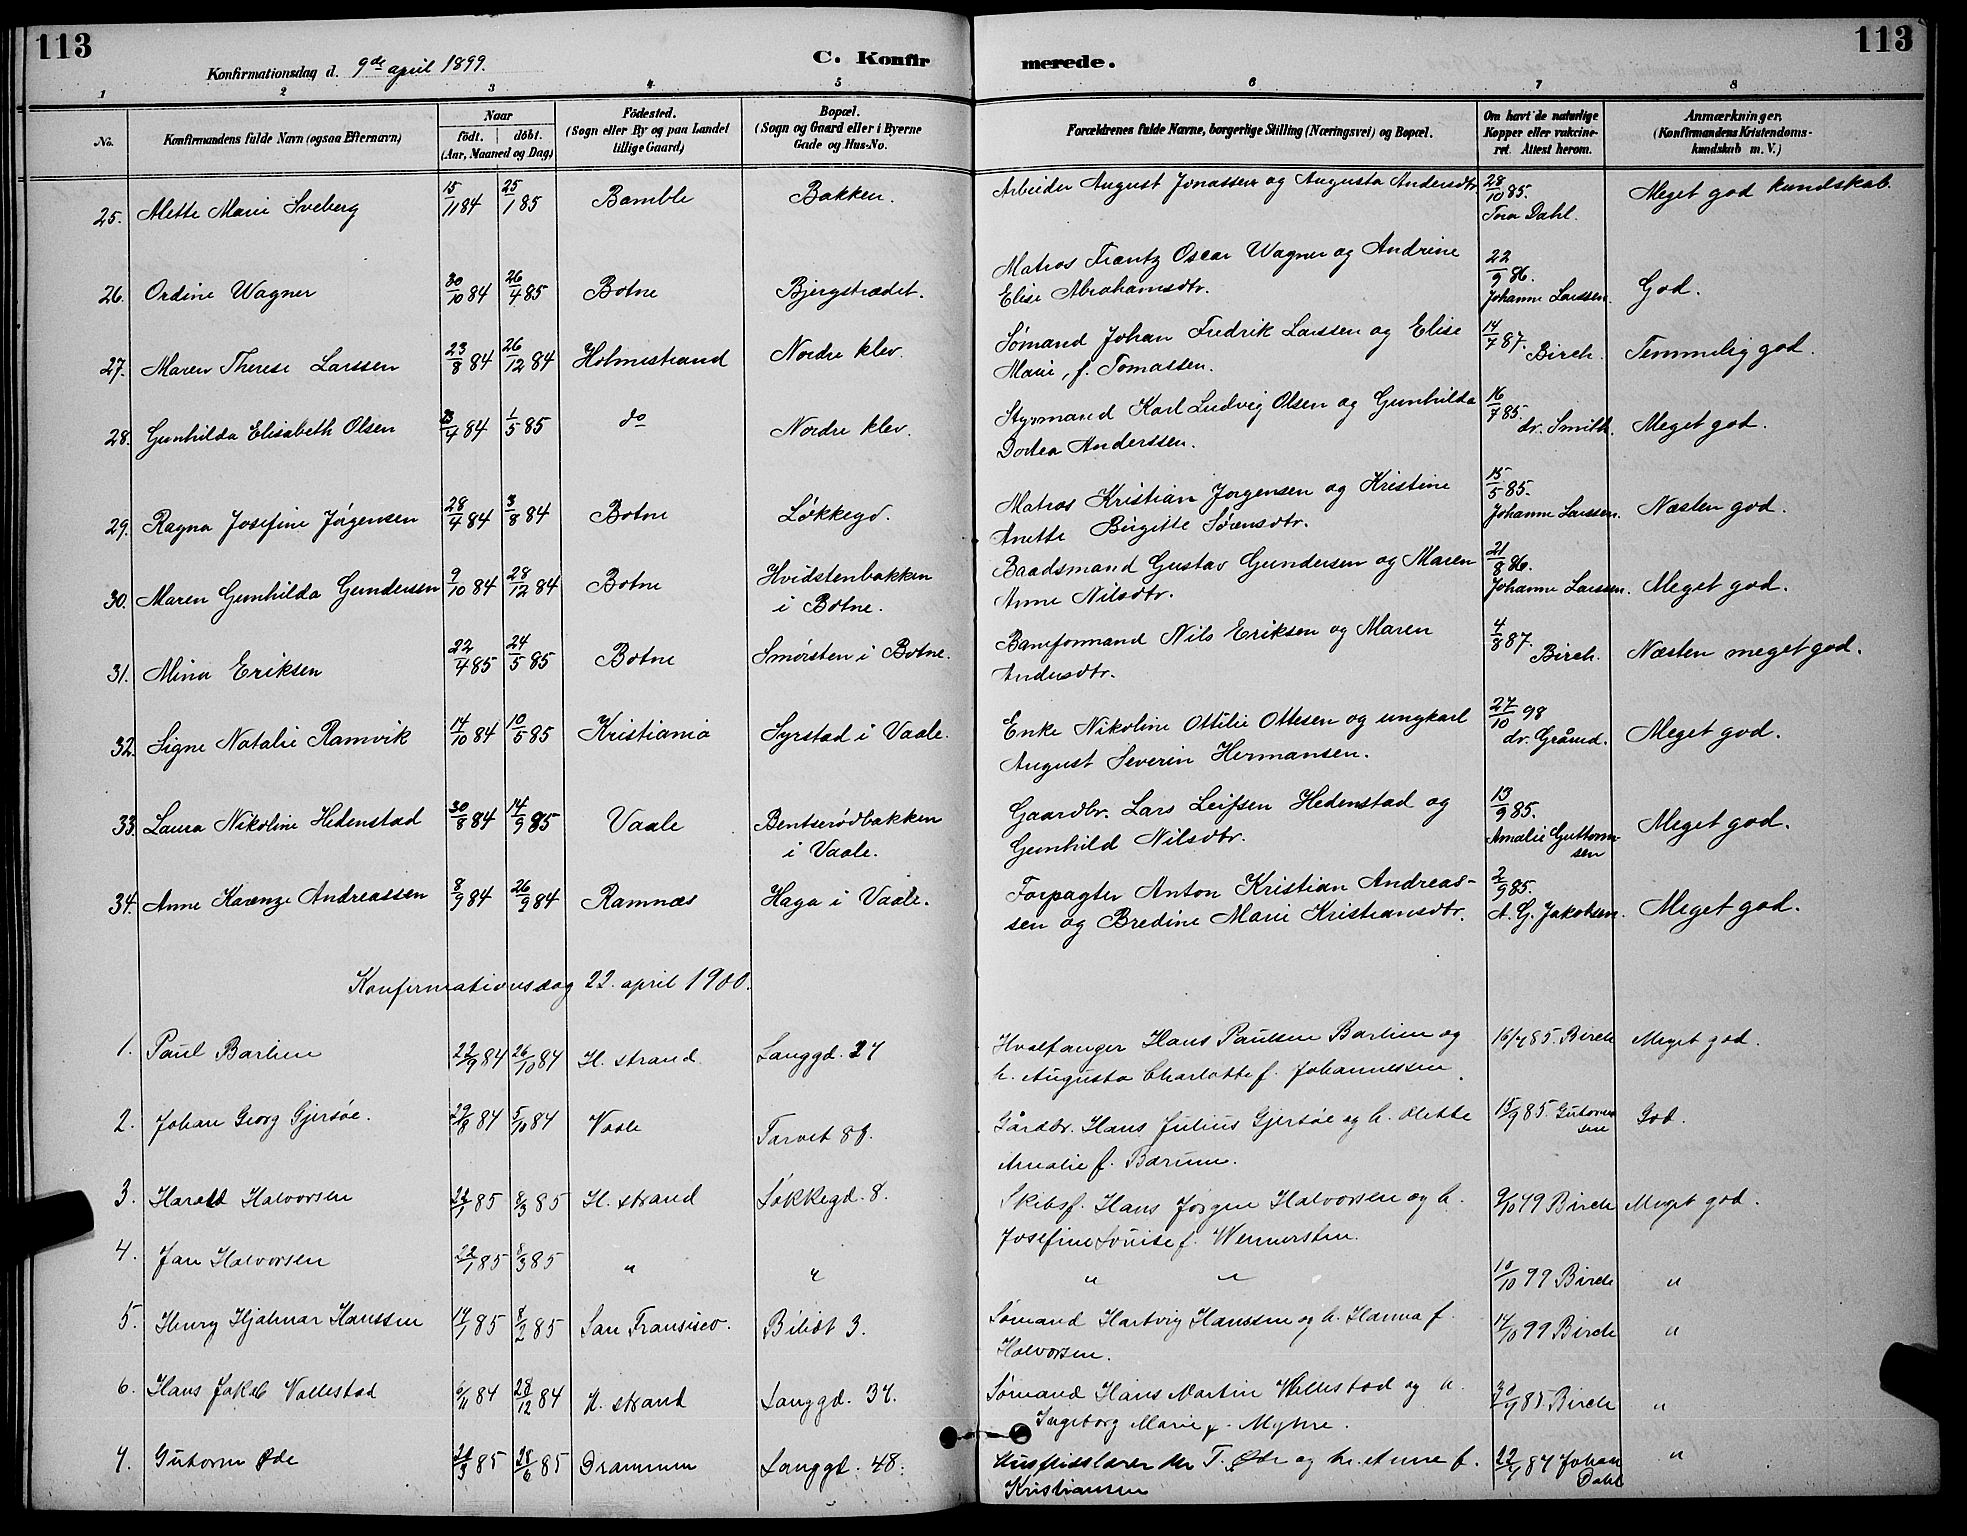 113
113
Konfirmationsdag d. 9de april 1899.
C. Konfir
merede.
1 2 3 4 5 6 7 8
No.
Konfirmandens fulde Navn (ogsaa Efternavn)
Naar
født. døbt.
(Aar, Maaned og Dag)
Födested.
(Sogn eller By og paa Landet
tillige Gaard)
Bopæl.
(Sogn og Gaard eller i Byerne
Gade og Hus-No.
Forældrenes fulde Navne, borgerlige Stilling (Næringsvei) og Bopæl.
Om havt de naturlige
Kopper eller vakcine-
ret. Attest herom.
Anmærkninger,
(Konfirmandens Kristendoms-
kundskab m. V.)
25. Mette Marie Sveberg 15/11 84 25/1 85 Bamble Bakken. Arbeider August Jonassen og Augusta Andersdtr. 28/10 85. Meget god kundskab.
Tora Dahl.
26. Ordine Wagner 30/10 84 26/4 85 Botne Bjergstrædet. Matros Frantz Oscar Wagner og Andrine 22/9 86. God.
Elise Abrahamsdtr. Johanne Larssen.
27. Maren Therese Larssen 23/8 84 26/12 84 Holmestrand Nordre klev. Sømand Johan Fredrik Larssen og Elise 14/7 87. Birch. Temmelig god.
Marie, f. Tomassen.
28. Gunhilda Elisabeth Olsen 23/4 84 1/5 85 do Nordre klev. Styrmand Karl Ludvig Olsen og Gunhilda 16/7 85. dr. Smith. Meget god.
Dortea Anderssen.
29. Ragna Josefine Jørgensen 28/4 84 3/8 84 Botne Løkkegd. Matros Kristian Jørgensen og Kristine 15/5 85. Næsten god.
Anette Birgitte Sørensdtr. Johanne Larssen.
30. Maren Gunhilda Gundersen 9/10 84 28/12 84 Botne Hvidstenbakken i Botne. Baadsmand Gustav Gundersen og Maren 21/8 86. Meget god.
Anne Nilsdtr. Johanne Larssen.
31. Mina Eriksen 22/4 85 24/5 85 Botne Smørsten i Botne. Baneformand Nils Eriksen og Maren 4/8 87. Birch. Næsten meget god.
Andersdtr.
32. Signe Natalie Ramvik 14/10 84 10/5 85 Kristiania Syrstad i Vaale. Enke Nikoline Ottilie Ottesen og ungkarl 27/10 98 Meget god.
August Severin Hermansen. dr. Grårud.
33. Laura Nikoline Hedenstad 30/8 84 14/9 85 Vaale Bentserødbakken i Vaale. Gaardbr. Lars Leifsen Hedenstad og 13/9 85. Meget god.
Gunhild Nilsdtr. Amalie Guttormsen
34. Anne Karenze Andreassen 8/9 84 26/9 84 Ramnæs Haga i Vaale. Forpagter Anton Kristian Andreas- 2/9 85. Meget god.
sen og Bredine Marie Kristiansdtr. A. G. Jakobsen.
Konfirmationsdag 22. april 1900.
1. Paul Barlien 22/9 84 26/10 84 H. strand Langgd. 27 Hvalfanger Hans Paulsen Barlien og 16/7 85. Birch Meget god.
h. Augusta Charlotte f. Johannessen
2. Johan Georg Gjersøe. 29/8 84 5/10 84 Vaale Torvet 88. Gårdbr. Hans Julius Gjersøe og h. Mette 15/9 85. Gutormsen God.
Amalie f. Bærum.
3. Harald Halvorsen 22/1 85 8/3 85 H. strand Løkkegd. 8. Skibsf. Hans Jørgen Halvorsen og h. 9/10 99 Birch Meget god.
Josefine Louise f. Wennersten.
4. Jan Halvorsen 22/1 85 8/3 85 " " " " 10/10 99 Birch "
5. Henry Hjalmar Hanssen 14/1 85 8/2 85 San Fransisco. Bibidt 3. Sømand Hartvig Hanssen og h. Hanna f. 14/10 99 Birch "
Halvorsen.
6. Hans Jakob Vallestad 6/11 84 28/12 84 H. strand Langgd. 37. Sømand Hans Martin Wallestad og h. 30/7 85. Birch "
Ingeborg Marie f. Myhre.
7. Gutorm Øde 21/3 85 28/6 85 Drammen Langgd. 48. T. Øde og h. Anne f. 22/7 87 Johan Dahl "
Kristiansen